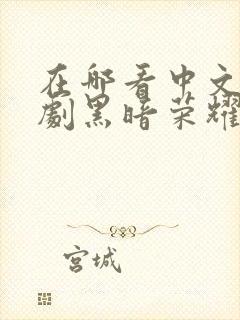 在哪看中文
劇黑暗荣耀
宮城